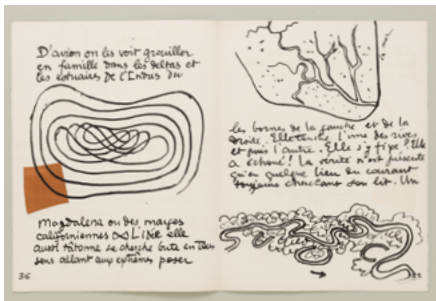 D'avion on les voit grouiller
en famille dans les deltas et
les estuaires de l'Indus du
Magdalena ou des marges
californiennes ∞ L'idée elle
aussi tâtonne se cherche bute en tous
sens allant aux extrêmes poser
36
les bornes de la gauche et de la
droite. Elle touche l'une des rives
et puis l'autre. Elle s'y fixe? Elle
a échoué! La vérité n'est présente
qu'en quelque lieu du courant
toujours cherchant son lit. Un